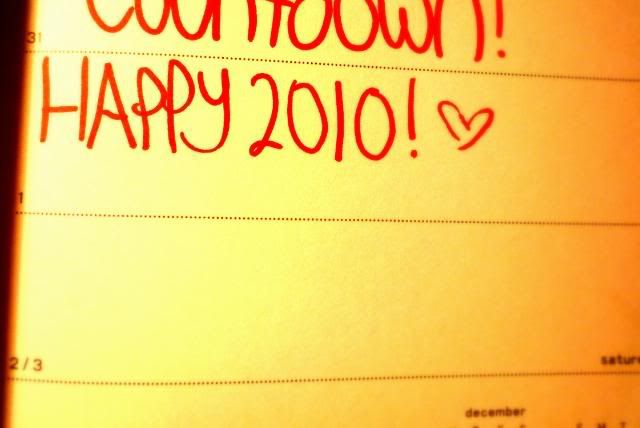 Countdown!
31
HAPPY 2010! ♡
1
2/3
satur
december